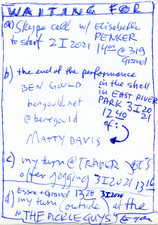 WAITING FOR
a) Skype call w/ Elisabeth
PENKER
to start 2 I 2021 1422 @ 319
Grand
b) the end of the performance
BEN GOULD in the shell
bengould.net in EAST RIVER
PARK 3 I 20
@benegould 21
1240
of:
MATTY DAVIS
c) my turn @ TRADER JOE'S
after jogging 3 I 2021 1316
d) Essex + Grand 1328 3 I 2021
my turn (outside) at the
"THE PICKLE GUYS"